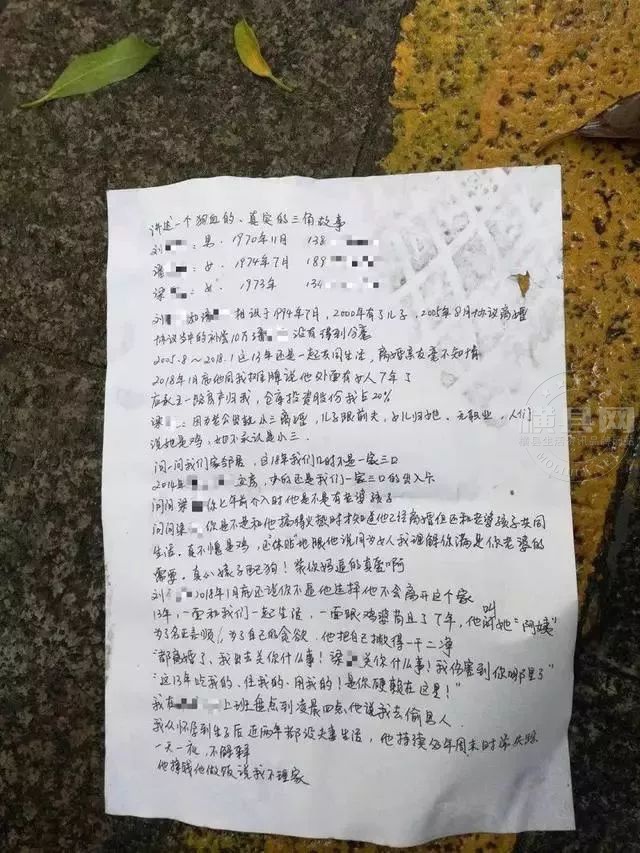 讲述一个狗血的、真实的三角故事
刘 : 男. 1970年11月 138
潘 : 女. 1974年7月 189
梁 : 女. 1973年 134
刘 和潘 相识于1994年7月,2000年有了儿子,2005年8月协议离婚
协议当中的补偿10万潘 没有得到分毫
2005.8~2018.1这13年还是一起共同生活,离婚亲友毫不知情
2018年1月底他同我摊牌说他外面有女人7年了
应承五一路房产归我,仓库投资股份我占20%
梁 : 因为老公出轨小三离婚,儿子跟前夫,女儿归她. 无职业,人们
说她是鸡,如不承认是小三.
问一问我们家邻居,这18年我们几时不是一家三口
2014年 交房,办的还是我们一家三口的出入卡
问问梁 你七年前介入时他是不是有老婆孩子
问问梁 你是不是和他搞得火热时才知道他已经离婚但还和老婆孩子共同
生活,真不愧是鸡,还"体贴"地跟他说同为女人我理解你满足你老婆的
需要,真心婊子配狗!装你妈逼的真爱啊
刘 2018年1月底还说你不逼他选择他不会离开这个家
13年,一面和我们一起生活,一面跟鸡婆苟且了7年,他叫她"阿姨"
为了名正言顺,为了自己的贪欲,他把自己撇得一干二净
"都离婚了,我出去关你什么事!梁 关你什么事!我伤害到你哪里了"
"这13年吃我的、住我的、用我的!是你硬赖在这里!"
我在 上班盘点到凌晨四点他说我去偷男人
我从怀孕到生了后近两年都没夫妻生活,他持续多年周末时常失踪
一天一夜,不解释
他挣钱他做饭说我不理家
横县网